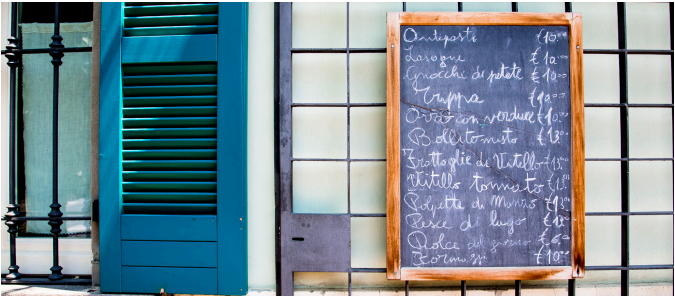 Antipasti €10.00
Lasagne €10.00
Gnocchi di patate €10.00
Trippa €10.00
con verdure €10.00
Bollito misto €13.00
Frattaglie di Vitello €13.00
Vitello tonnato €13.00
Polpette di Manzo €13.00
Pesce di lago €13.00
Dolce del giorno €6.00
Formaggi €10.00